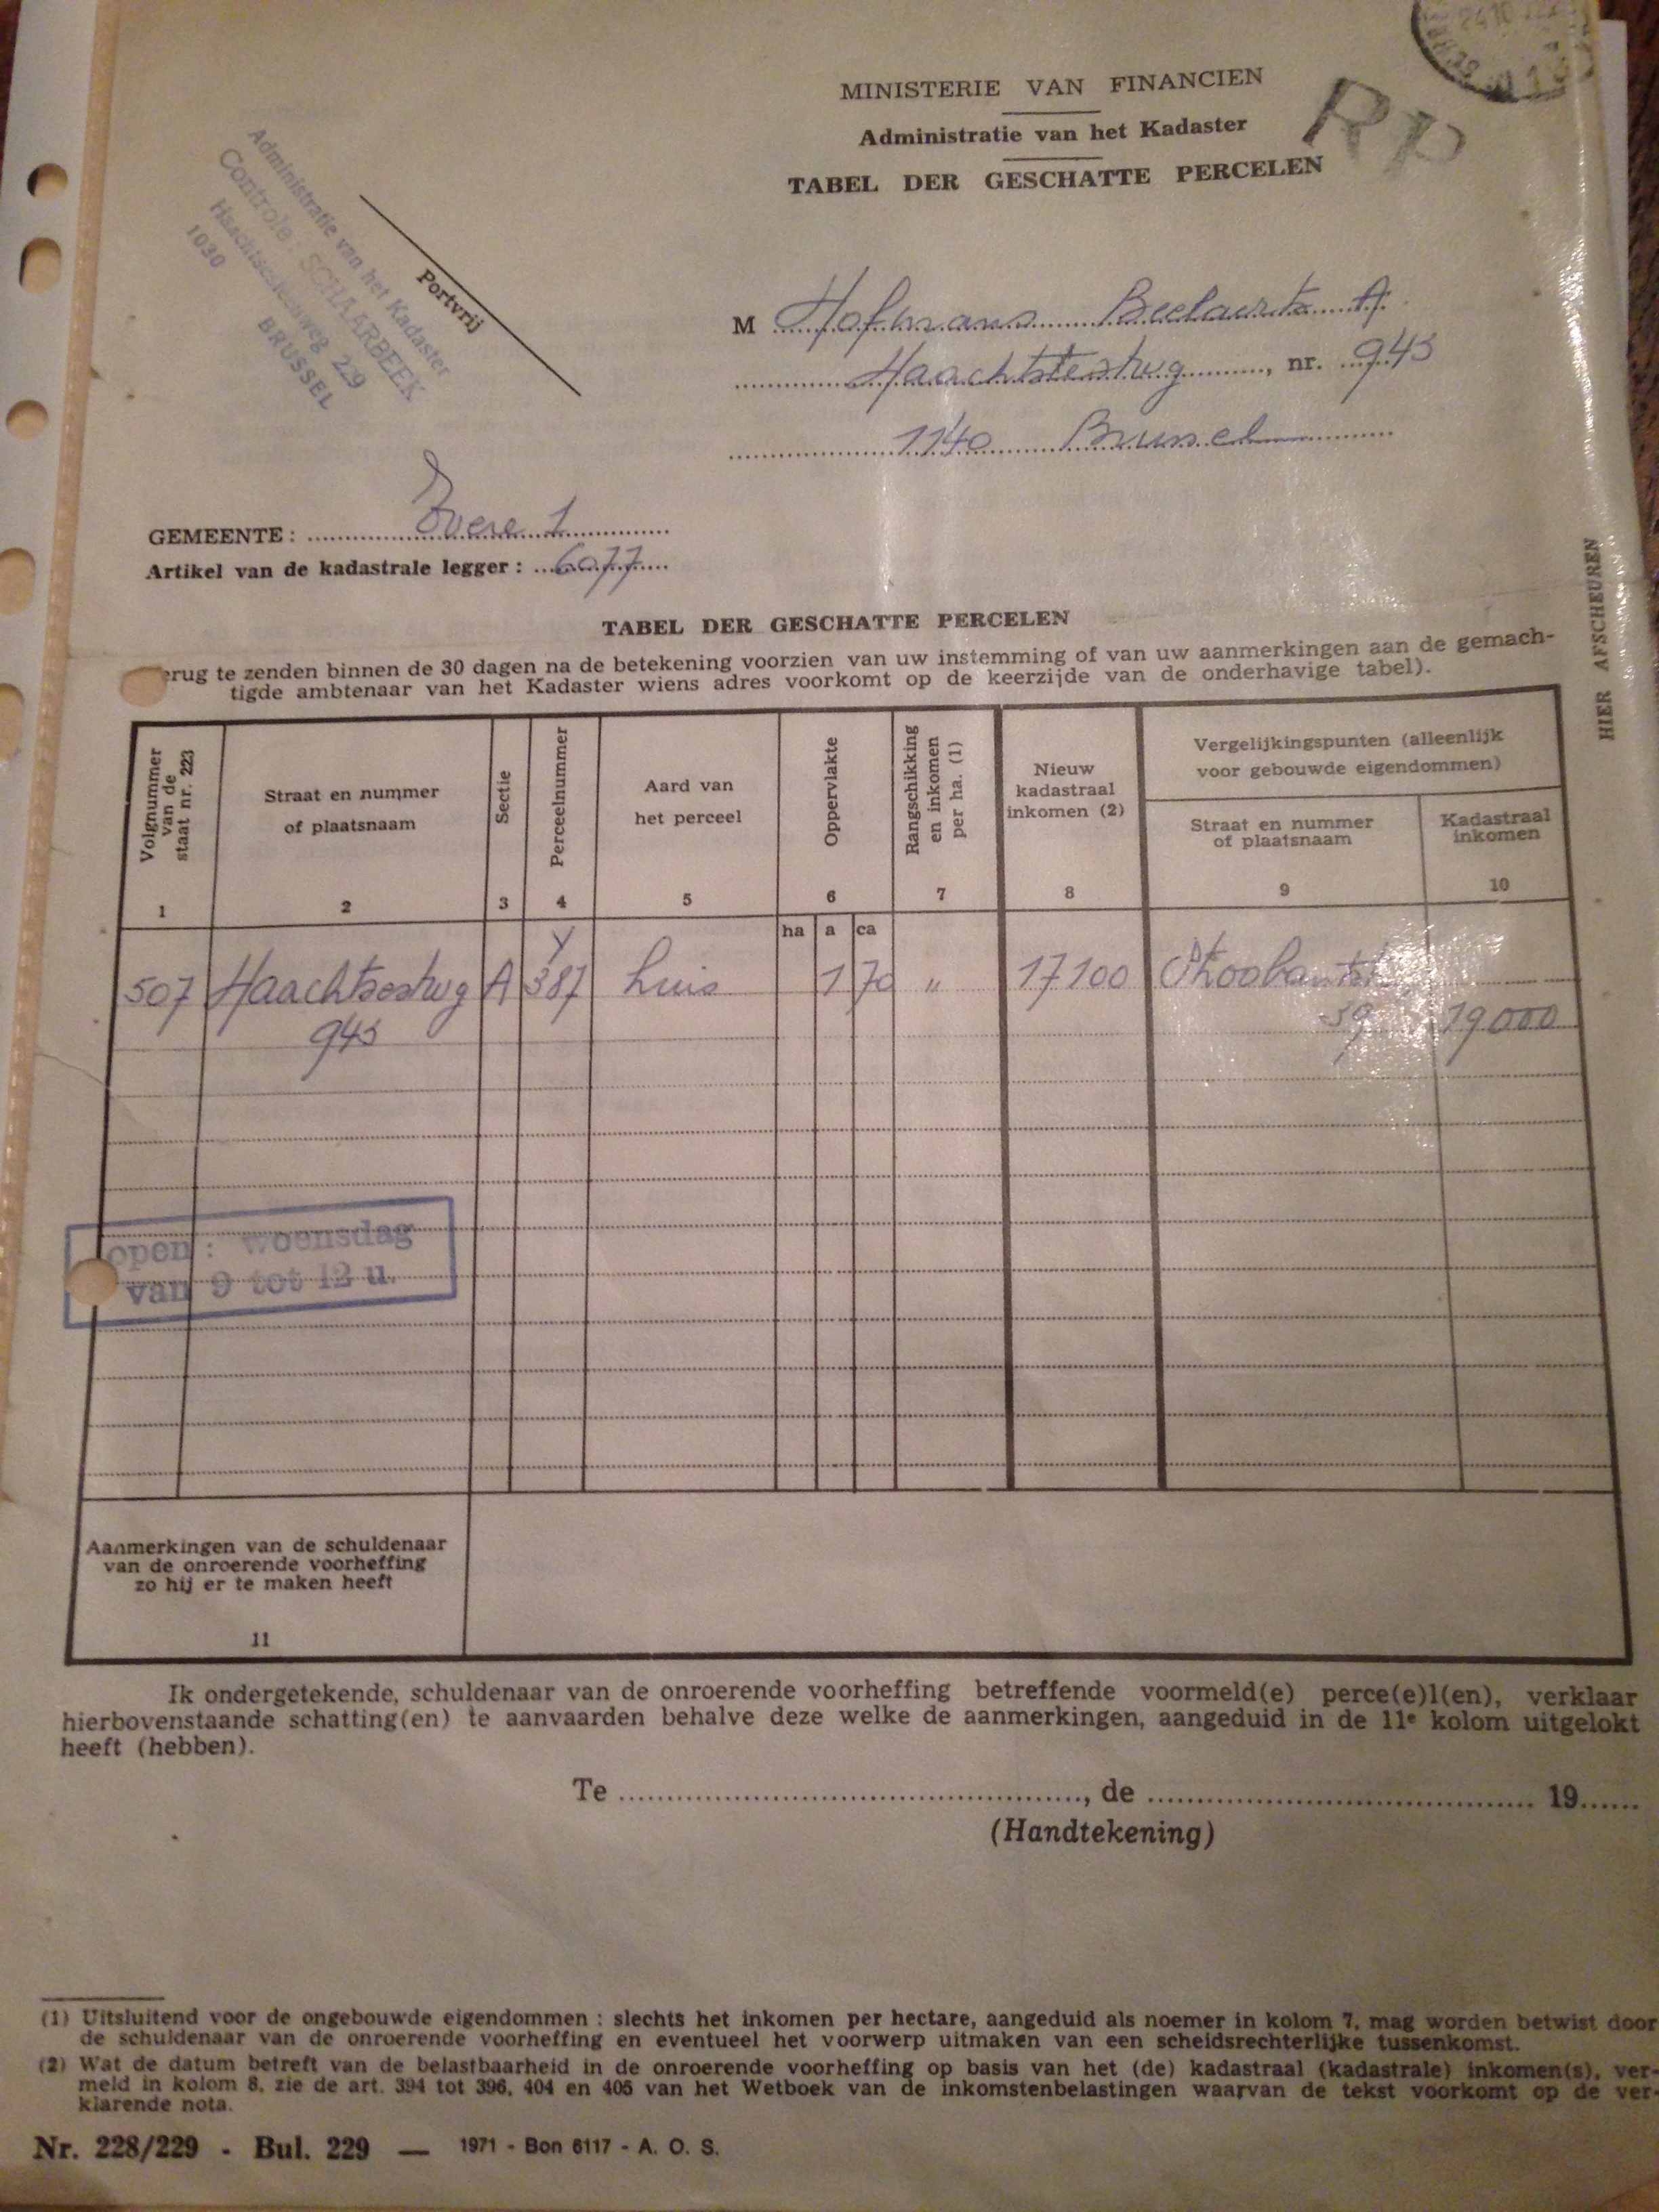 24 10
MINISTERIE VAN FINANCIEN
Administratie van het Kadaster
RP
TABEL DER GESCHATTE PERCELEN
Administratie van het Kadaster
Controle : SCHAARBEEK
Haachtsesteenweg 229
1030 BRUSSEL
Portvrij
M Hofmans Beelaerts A
Haachtsestwg, nr. 943
1140 Brussel
GEMEENTE : Evere 1
Artikel van de kadastrale legger : 6077
HIER AFSCHEUREN
TABEL DER GESCHATTE PERCELEN
erug te zenden binnen de 30 dagen na de betekening voorzien van uw instemming of van uw aanmerkingen aan de gemach-
tigde ambtenaar van het Kadaster wiens adres voorkomt op de keerzijde van de onderhavige tabel).
Volgnummer van de staat nr. 223
Straat en nummer of plaatsnaam
Sectie
Perceelnummer
Aard van het perceel
Oppervlakte
Rangschikking en inkomen per ha. (1)
Nieuw kadastraal inkomen (2)
Vergelijkingspunten (alleenlijk voor gebouwde eigendommen)
Straat en nummer of plaatsnaam
Kadastraal inkomen
1 2 3 4 5 6 7 8 9 10
ha a ca
Y
507 Haachtsestwg A 387 huis 1 70 " 17100
943 39 19000
open : woensdag
van 9 tot 12 u.
Aanmerkingen van de schuldenaar
van de onroerende voorheffing
zo hij er te maken heeft
11
Ik ondergetekende, schuldenaar van de onroerende voorheffing betreffende voormeld(e) perce(e)l(en), verklaar
hierbovenstaande schatting(en) te aanvaarden behalve deze welke de aanmerkingen, aangeduid in de 11e kolom uitgelokt
heeft (hebben).
Te , de 19
(Handtekening)
(1) Uitsluitend voor de ongebouwde eigendommen : slechts het inkomen per hectare, aangeduid als noemer in kolom 7, mag worden betwist door
de schuldenaar van de onroerende voorheffing en eventueel het voorwerp uitmaken van een scheidsrechterlijke tussenkomst.
(2) Wat de datum betreft van de belastbaarheid in de onroerende voorheffing op basis van het (de) kadastraal (kadastrale) inkomen(s), ver-
meld in kolom 8, zie de art. 394 tot 396, 404 en 405 van het Wetboek van de inkomstenbelastingen waarvan de tekst voorkomt op de ver-
klarende nota.
Nr. 228/229 - Bul. 229 — 1971 - Bon 6117 - A. O. S.